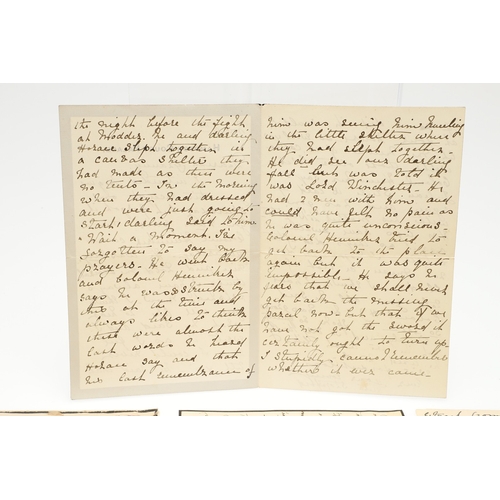 the night before the fight
at Modder. He and darling
Horace slept together in
a canvas shelter they
had made as there were
no tents - In the morning
when they had dressed
and were just going to
start, darling said to him
"Wait a moment. I've
forgotten to say my
prayers. He went back
and Colonel Henniker
says he was so struck by
this at the time and
always likes to think
these were almost the
last words he heard
Horace say and that
his last remembrance of
him was seeing him kneeling
in the little shelter where
they had slept together -
He did see our darling
fall - but was told it
was Lord Winchester - He
had 2 men with him and
could have felt no pain as
he was quite unconscious -
Colonel Henniker tried to
get back to the place
again but it was quite
impossible. He says he
fears that we shall never
get back the missing
parcel now - but that if we
have not got the sword it
certainly ought to turn up.
I stupidly cannot remember
whether it ever came -